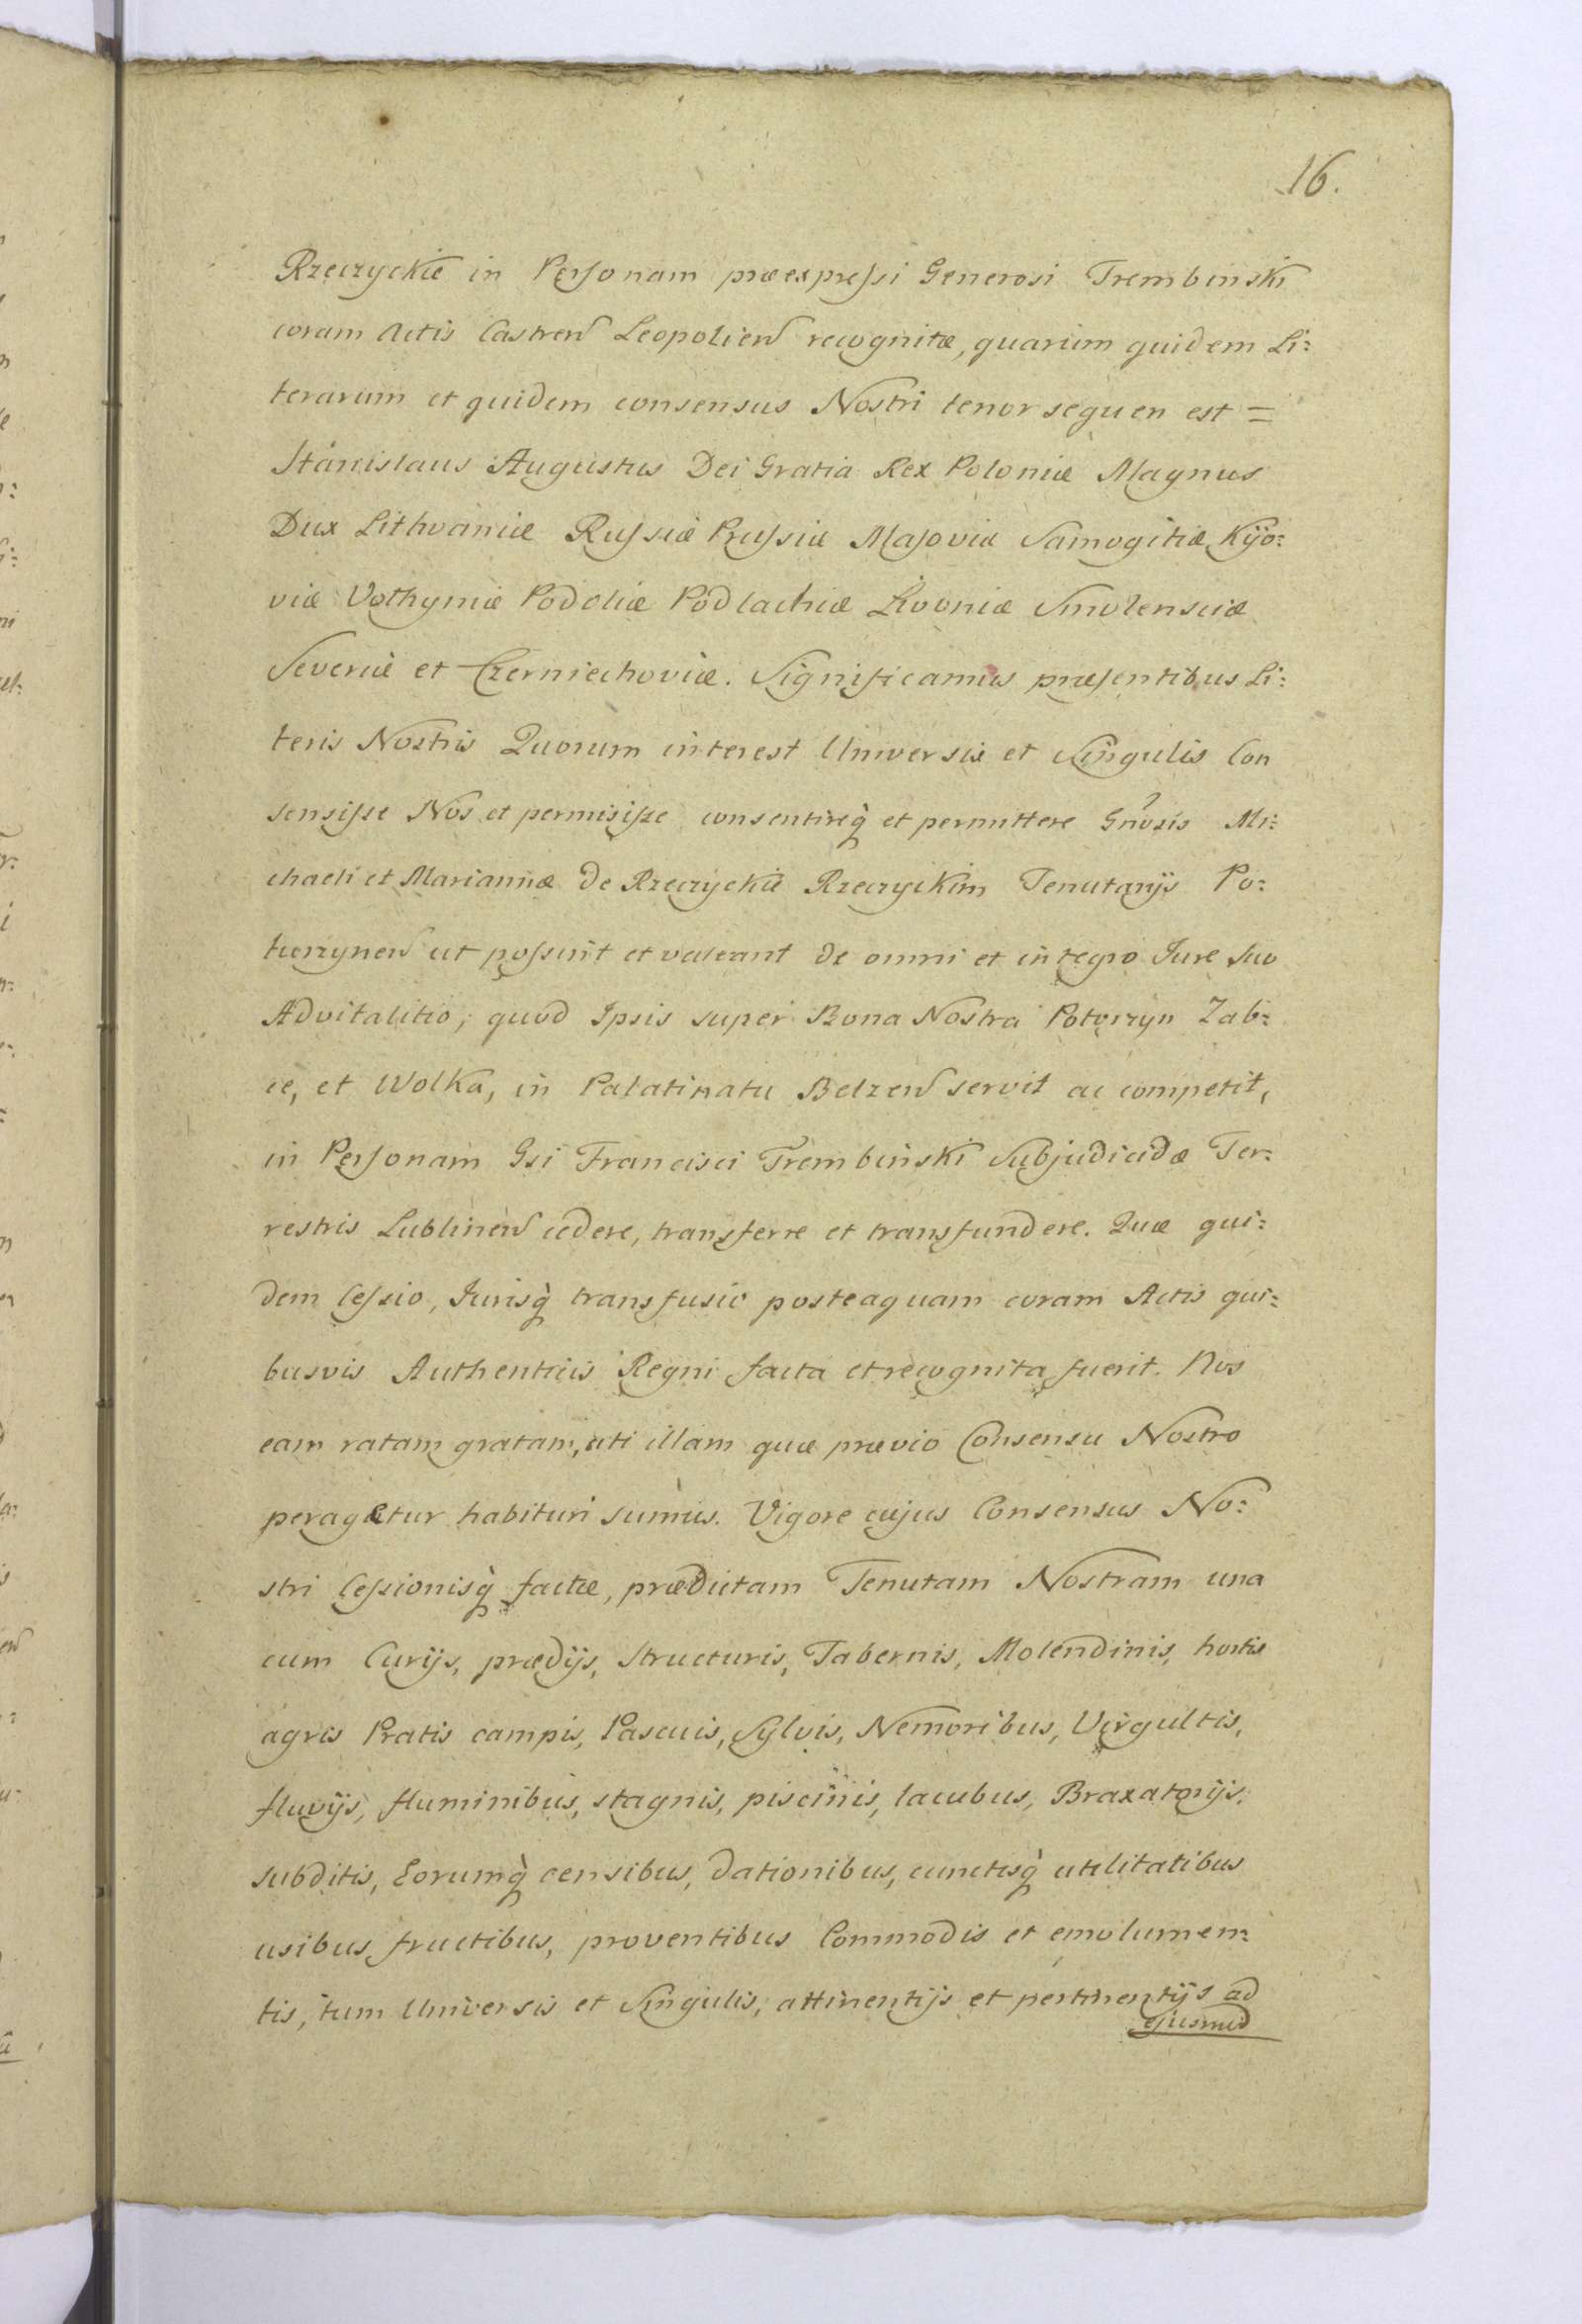 16.
Rzeczyckie in Personam præexpressi Generosi Trembinski
coram Actis Castren Leopolien recognitæ, quarum quidem Li:
terarum et quidem consensus Nostri tenor sequen est =
Stanislaus Augustus Dei Gratia Rex Poloniæ Magnus
Dux Lithvaniæ Russiæ Prussiæ Masoviæ Samogitiæ Kÿo:
viæ Volhyniæ Podoliæ Podlachiæ Livoniæ Smolensciæ
Severiæ et Czerniechoviæ. Significamus præsentibus Li:
teris Nostris Quorum interest Universis et Singulis Con
sensisse Nos et permisisse consentireq̀ et permittere Gnosis Mi:
chaeli et Mariannæ de Rzeczyckie Rzeczyckim Tenutarijs Po:
turzynen ut possint et valeant de omni et integro Jure suo
Advitalitio, quod Ipsis super Bona Nostra Poturzyn Zab:
ce, et Wolka, in Palatinatu Belzen servit ac competit,
in Personam Gsi Francisci Trembinski Subjudicidæ Ter:
restris Lublinen cedere, transferre et transfundere. Quæ qui:
dem Cessio, Jurisq̀ transfusio posteaquam coram Actis qui:
busvis Authenticis Regni facta et recognita fuerit. Nos
eam ratam gratam, uti illam quæ prævio Consensu Nostro
peragetur habituri sumus. Vigore cujus Consensus No:
stri Cessionisq̀ factæ, prædictam Tenutam Nostram una
cum Curijs, prædijs, structuris, Tabernis, Molendinis, hortis
agris Pratis campis, Pascuis, Sylvis, Nemoribus, Virgultis,
fluvijs, fluminibus, stagnis, piscinis, lacubus, Braxatorijs,
subditis, Eorumq̀ censibus, dationibus, cunctisq̀ utilitatibus
usibus fructibus, proventibus Commodis et emolumen:
tis, tum Universis et Singulis, attinentijs et pertinentijs ad
ejusmod